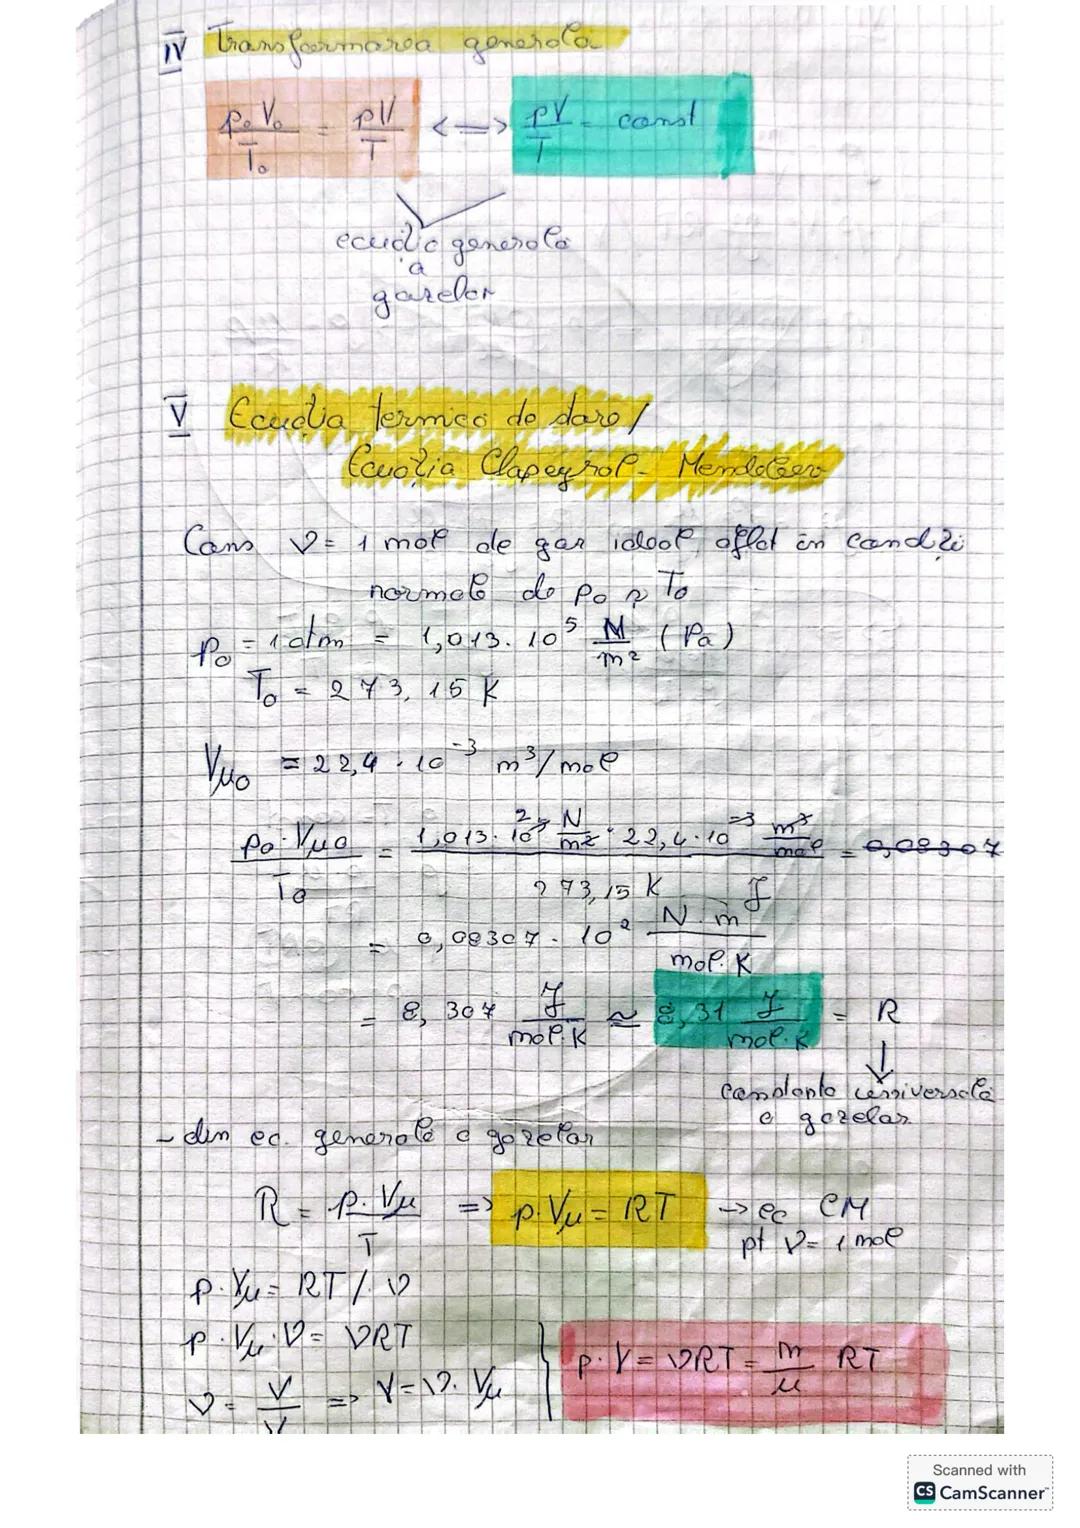 IV Transformarea generala
p₀V₀/T₀ = pV/T <=> pV/T = const
ecuația generala
a
gazelor
V Ecuația termica de stare /
Ecuația Clapeyrol - Mendeleev
Cons ν = 1 mol de gaz ideal aflat în condiții
normale de p₀ și T₀
p₀ = 1 atm = 1,013 · 10⁵ N/m² (Pa)
T₀ = 273,15 K
Vμ₀ = 22,4 · 10⁻³ m³/mol
p₀·Vμ₀/T₀ = 1,013·10⁵ N/m² · 22,4·10⁻³ m³/mol / 273,15 K = 0,08307
= 0,08307 · 10² N·m/mol·K J
= 8,307 J/mol·K ≈ 8,31 J/mol·K = R
constanta universală
a gazelor
- din ec. generale a gazelor
R = p·Vμ/T => p·Vμ = RT → ec CM
pt ν = 1 mol
p·Vμ = RT /·ν
p·Vμ·ν = νRT
ν = V/V => V = ν·Vμ } p·V = νRT = m/μ RT
Scanned with
CS CamScanner